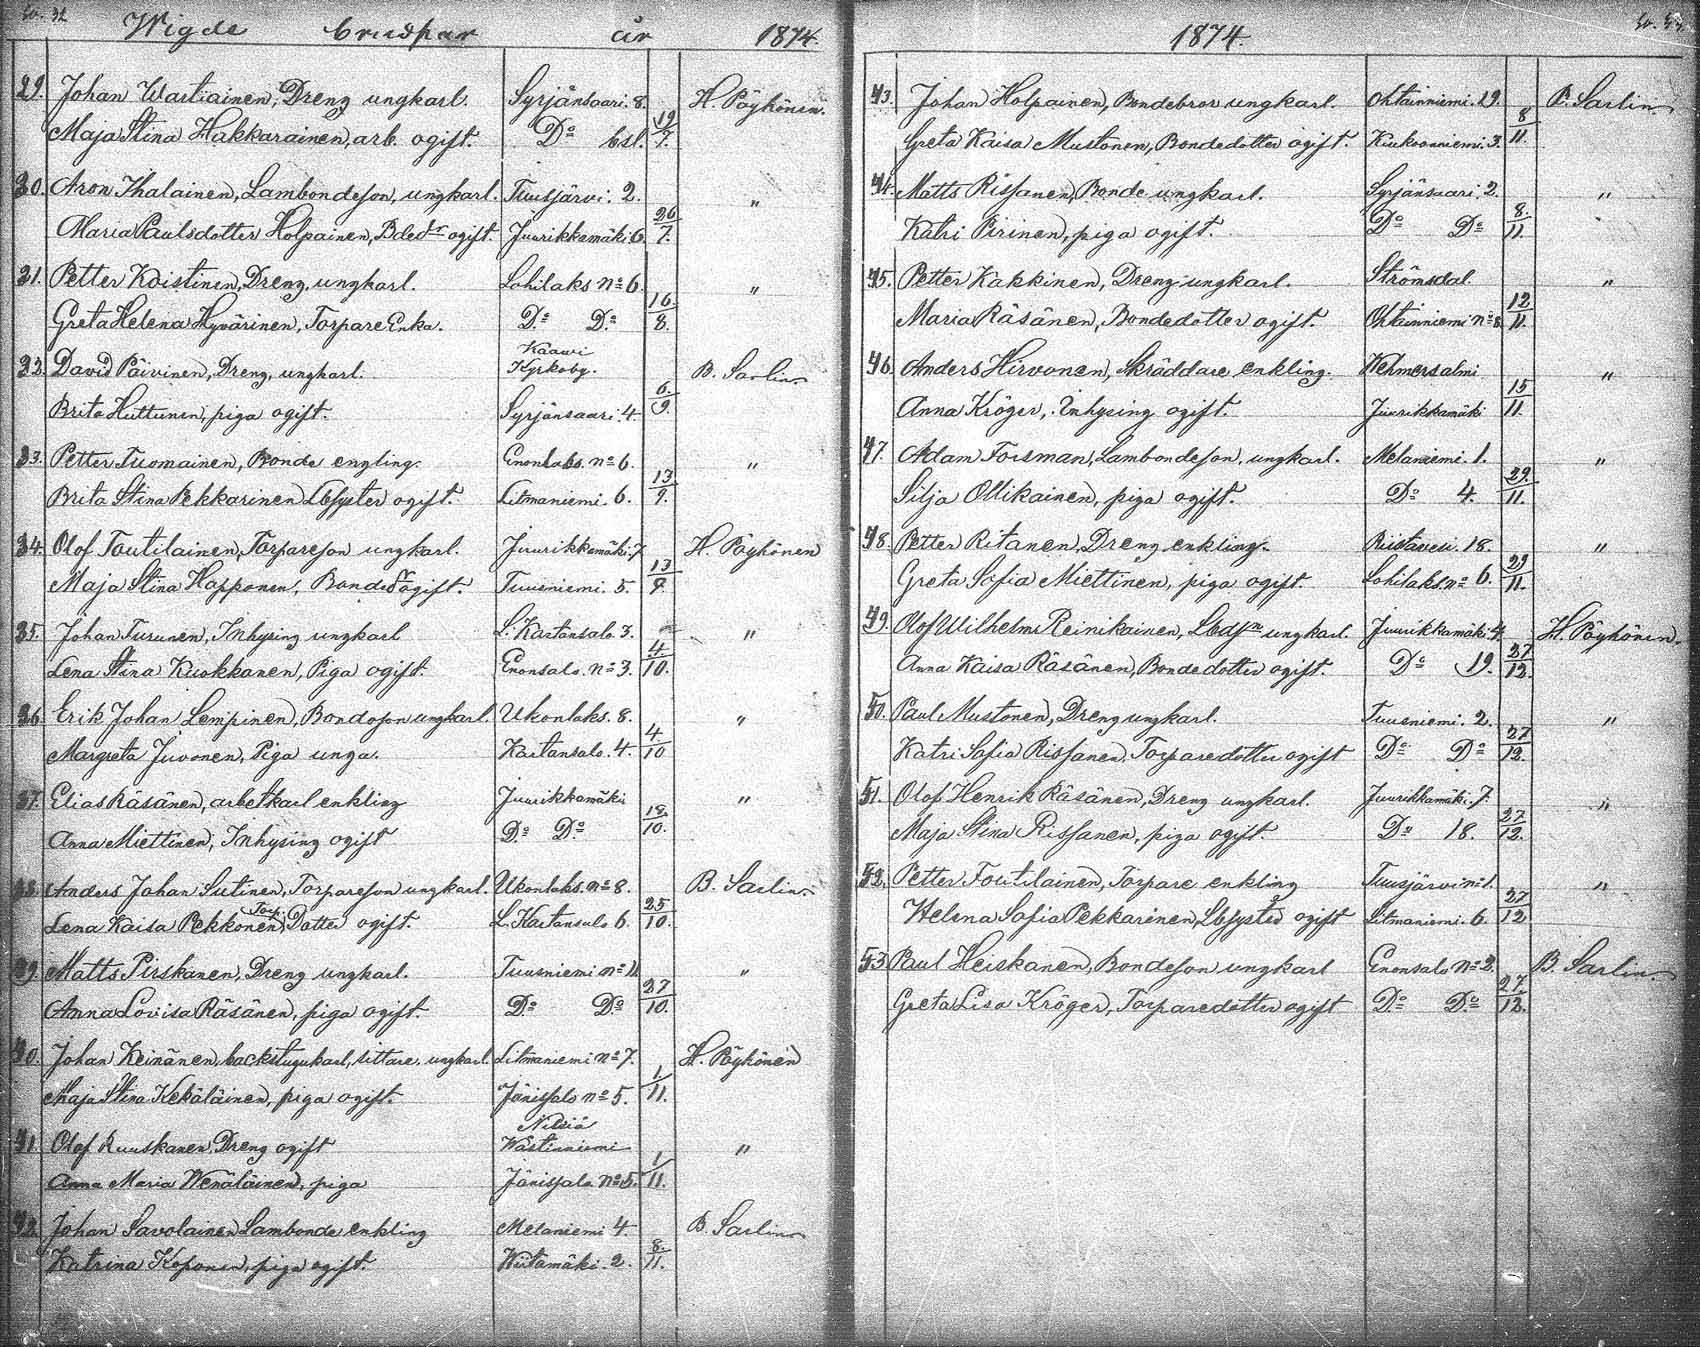 Wigde brudpar år 1874.
29. Johan Wartiainen, Dreng ungkarl. Syrjänsaari. 8. 19/7. H. Pöyhönen.
Maja Stina Hakkarainen, arb. ogift. Do bsl.
30. Aron Ihalainen, Lambondeson, ungkarl. Tuusjärvi. 2. 26/7. "
Maria Paulsdotter Holpainen, Bdedr ogift. Juurikkamäki 6.
31. Petter Koistinen, Dreng, ungkarl. Lohilaks No 6. 16/8. "
Greta Helena Hyvärinen, Torpare Enka. Do Do
Kaawi
32. David Päivinen, Dreng, ungkarl. Kyrkoby. 6/9. B. Sarlin
Brita Huttunen, piga ogift. Syrjänsaari. 4.
33. Petter Tuomainen, Bonde engling. Enonlaks. No 6. 13/9. "
Brita Stina Pekkarinen Lbsyster ogift. Litmaniemi. 6.
34. Olof Toutilainen, Torpareson ungkarl. Juurikkamäki. 7 13/9. H. Pöyhönen
Maja Stina Hopponen, Bondedr ogift. Tuusniemi. 5.
35. Johan Turunen, Inhysing ungkarl L. Kartansalo 3. 4/10. "
Lena Stina Kuokkanen, Piga ogift. Enonsalo. No 3.
36. Erik Johan Lempinen, Bondoson ungkarl. Ukonlaks. 8. 4/10 "
Margreta Juvonen, Piga unga. Kartansalo. 4.
37. Elias Räsänen, arbetkarl enkling Juurikkamäki 18/10. "
Anna Miettinen, Inhysing ogift Do Do
38. Anders Johan Sutinen, Torpareson ungkarl. Ukonlaks. No 8. 25/10. B. Sarlin
Lena Kaisa Pekkonen, Torp. Dotter ogift. L. Kartansalo 6.
39. Matts Pirskanen, Dreng ungkarl. Tuusniemi No 11. 27/10. "
Anna Lovisa Räsänen, piga ogift. Do Do
40. Johan Keinänen, backstugukarl, sittare, ungkarl. Litmaniemi No 7. 1/11. H. Pöyhönen
Maja Stina Kekäläinen, piga ogift. Jänissalo No 5.
Nilsiä
41. Olof Ruuskanen, Dreng ogift Wästinniemi 1/11. "
Anna Maria Wenäläinen, piga Jänissalo No 5.
42. Johan Savolainen Lambonde enkling Melaniemi 4. 8/11. B Sarlin
Katrina Koponen, piga ogift. Wiitamäki. 2.
1874.
43. Johan Holpainen, Bondebror ungkarl. Ohtainniemi. 29. 8/11. B. Sarlin
Greta Kaisa Mustonen, Bondedotter ogift. Kiukoonniemi. 3.
44. Matts Rissanen, Bonde ungkarl. Syrjänsaari. 2. 8/11. "
Katri Pirinen, piga ogift. Do Do
45. Petter Kakkinen, Dreng ungkarl. Strömsdal. 12/11. "
Maria Räsänen, Bondedotter ogift. Ohtainniemi No 8.
46. Anders Hirvonen, Skräddare enkling. Wehmersalmi 15/11. "
Anna Kröger, Inhysing ogift. Juurikkamäki
47. Adam Forsman, Lambondeson, ungkarl. Melaniemi. 1. 29/11. "
Silja Ollikainen, piga ogift. Do 4.
48. Petter Ritanen, Dreng enkling. Riistavesi. 18. 29/11. "
Greta Sofia Miettinen, piga ogift. Lohilaks No 6.
49. Olof Wilhelm Reinikainen, Lbdsn ungkarl. Juurikkamäki. 4. 27/12. H. Pöyhönen.
Anna Kaisa Räsänen, Bondedotter ogift. Do 19.
50. Paul Mustonen, Dreng ungkarl. Tuusniemi. 2. 27/12. "
Katri Sofia Rissanen, Torparedotter ogift Do Do
51. Olof Henrik Räsänen, Dreng ungkarl. Juurikkamäki. 7. 27/12. "
Maja Stina Rissanen, piga ogift. Do 18.
52. Petter Toutilainen, Torpare enkling Tuusjärvi No 1. 27/12 "
Helena Sofia Pekkarinen, Lbsyster ogift Litmaniemi. 6.
53 Paul Heiskanen, Bondeson ungkarl Enonsalo No 2. 27/12. B. Sarlin
Greta Lisa Kröger, Torparedotter ogift Do Do